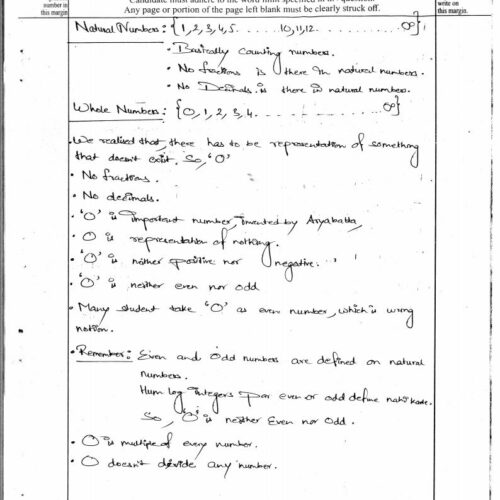 number in
this margin
Candidate must adhere to the word limit specified in
Any page or portion of the page left blank must be clearly struck off.
write on
this margin.
Natural Numbers: {1, 2, 3, 4, 5 . . . . . . . . 10, 11, 12 . . . . . . . . . ∞}
• Basically counting numbers.
• No fractions is there in natural numbers.
• No Decimals is there is natural numbers.
Whole Numbers: {0, 1, 2, 3, 4 . . . . . . . . . . . . . . . . ∞}
• We realised that, there has to be representation of something
that doesn't exist, So, '0'
• No fractions.
• No decimals.
• '0' is important number, invented by Aryabatta,
• 0 is representation of nothing.
• '0' is neither positive nor negative.
• '0' is neither even nor odd
• Many student take '0' as even number, which is wrong
notion.
• Remember: Even and odd numbers are defined on natural
numbers.
Hum log integers par even or odd define nahi karte.
So, '0' is neither Even nor odd.
• 0 is multiple of every number.
• 0 doesn't divide any number.